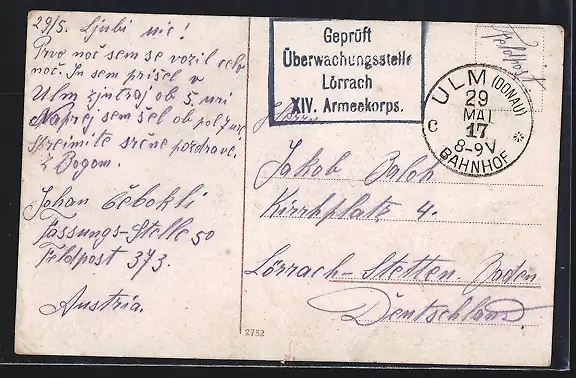 29/5. Ljubi nic!
Prvo noč sem se vozil celo
noč. In sem prišel v
Ulm zjutraj ob 5. uri
Naprej sem šel ob pol 7 uri
Sprejmite srčne pozdrave.
z Bogom.
Johan Čebokli
Fassungs-Stelle 50
Feldpost 373.
Austria.
Geprüft
Überwachungsstelle
Lörrach
XIV. Armeekorps.
Feldpost
ULM (DONAU)
29
MAI
17
8-9V
C *
BAHNHOF
Herrn
Jakob Baloh
Kirrhplatz 4.
Lörrach-Stetten Baden
Deutschland
2752